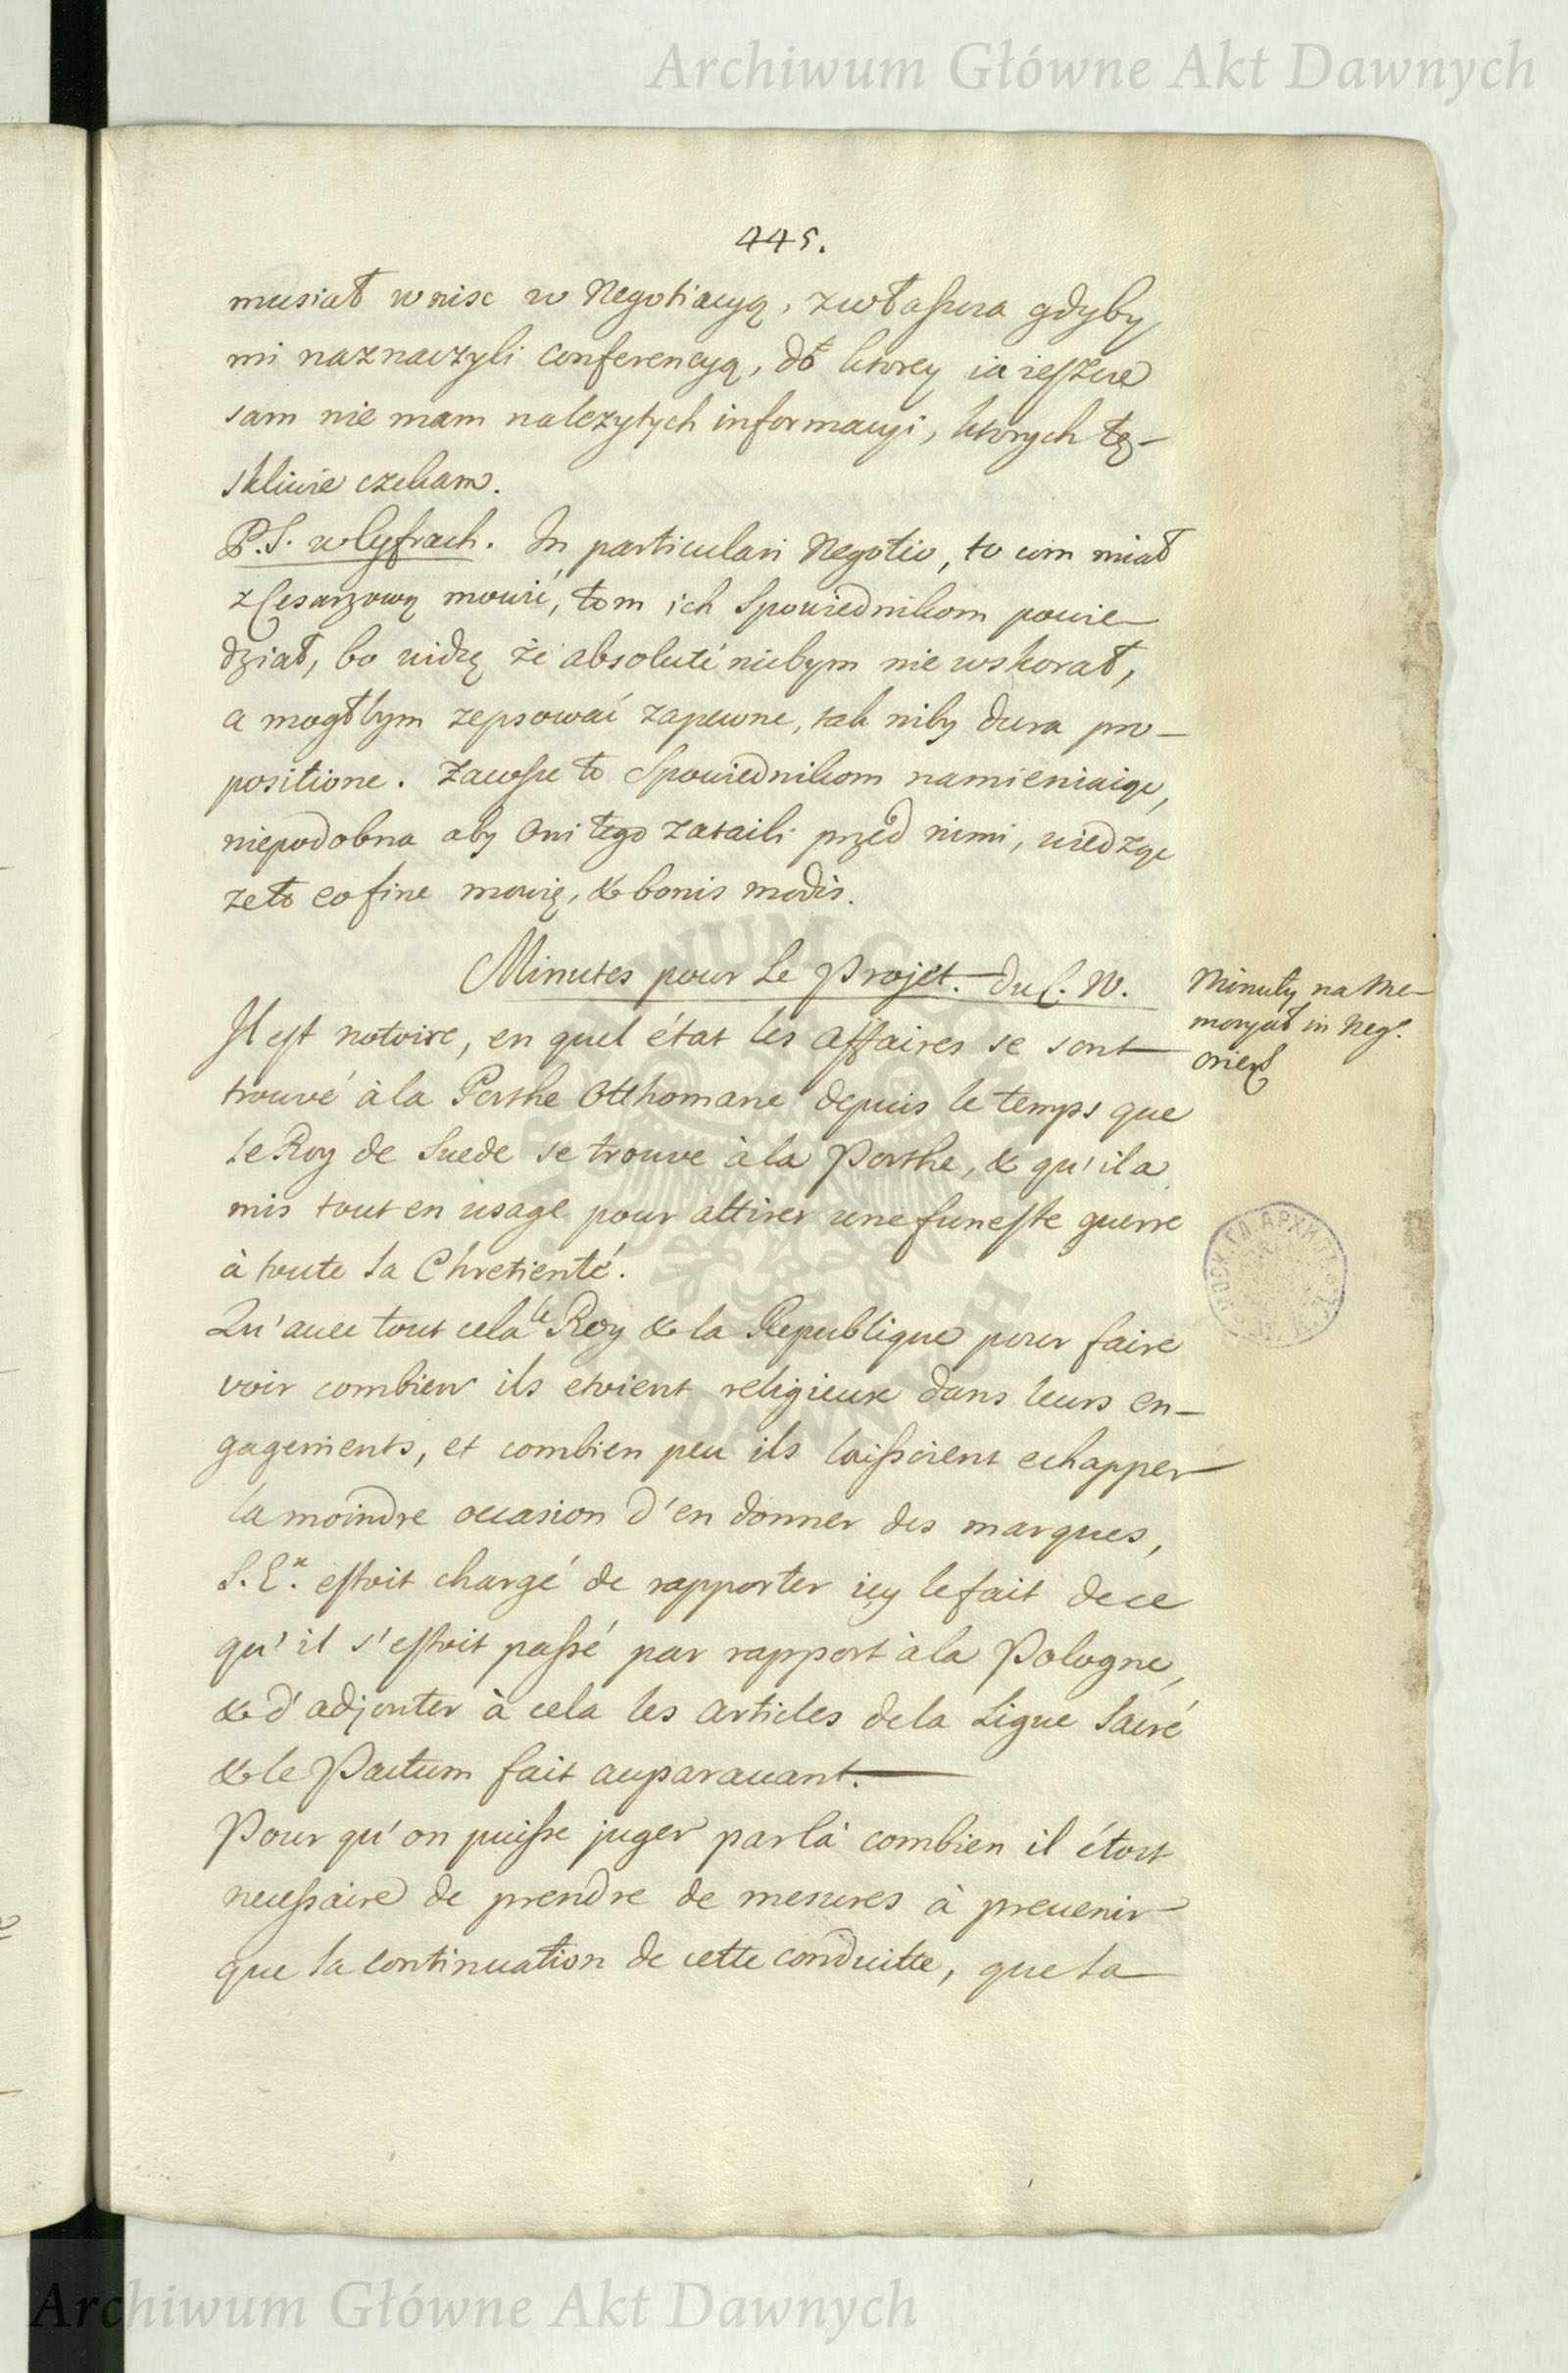 Archiwum Główne Akt Dawnych
445.
musiał wnisc w Negotiacyą, zwłaszcza gdyby
mi naznaczyli conferencyą, do ktorey ia ieszcze
sam nie mam nalezytych informacyi, ktorych tę-
skliwie czekam.
P.S. w Cyfrach. In particulari Negotio, to com miał
z Cesarzową mowić, tom ich Spowiednikom powie-
dział, bo widzę że absolutè nicbym nie wskorał,
a mogłbym zepsować zapewne, tak niby dura pro-
positione. Zawsze to Spowiednikom namieniaiąc,
niepodobna aby Oni tego zataili przed nimi, wiedząc
ze to eo fine mowię, & bonis modis.
Minutes pour Le Projet. du C. W.
Minuty na Me-
moryał in Neg.
orient
Il est notoire, en quel état les affaires se sont
trouvé à la Porthe Otthomane depuis le temps que
le Roy de Suede se trouve à la Porthe, & qu'il a
mis tout en usage pour attirer une funeste guerre
à toute la Chretienté.
Qu'avec tout cela le Roy & la Republique pour faire
voir combien ils etoient religieux dans leurs en-
gagements, et combien peu ils laissoient echapper
la moindre occasion d'en donner des marques,
S. E.x estoit chargé de rapporter icy le fait de ce
qu'il s'estoit passé par rapport à la Pologne,
& d'adjouter à cela les articles de la Ligue Sacré
& le Pactum fait auparavant.
Pour qu'on puisse juger par là combien il étoit
necessaire de prendre de mesures à prevenir
que la continuation de cette conduitte, que la
Archiwum Główne Akt Dawnych